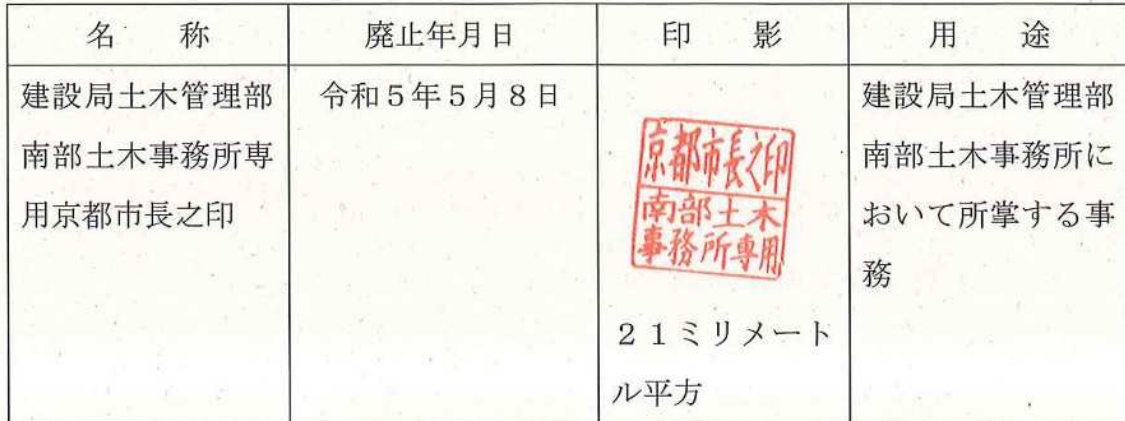 名　称
廃止年月日
印　影
用　途
建設局土木管理部
南部土木事務所専
用京都市長之印
令和５年５月８日
京都市長之印
南部土木
事務所専用
２１ミリメート
ル平方
建設局土木管理部
南部土木事務所に
おいて所掌する事
務